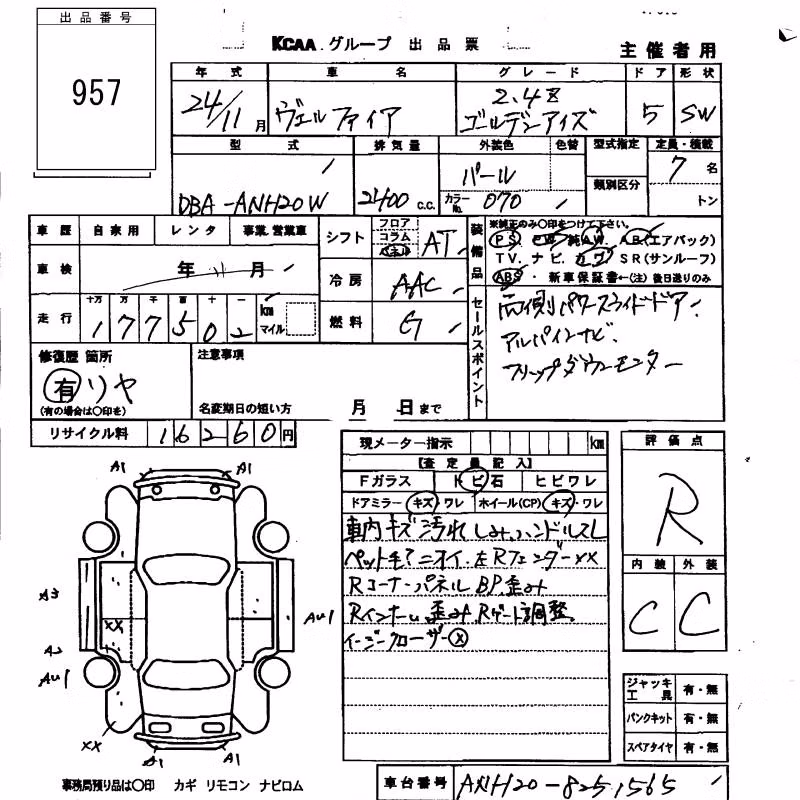 出品番号
957
KCAA.グループ 出品票
主催者用
年式 車名 グレード ドア 形状
24/11月 ヴェルファイア 2.4Z ゴールデンアイズ 5 SW
型式 排気量 外装色 色替 型式指定 定員・積載
DBA-ANH20W 2400 c.c. パール 類別区分 7名
カラーNo. 070 トン
車歴 自家用 レンタ 事業 営業車
シフト フロア コラム パネル AT
装備品
※純正のみ○印をつけて下さい。
PS. PW. 純AW. AB(エアバック)
TV. ナビ. カワ SR(サンルーフ)
ABS・新車保証書←(注)後日送りのみ
車検 年 月
冷房 AAC
走行 十万 万 千 百 十 一
177502 km マイル
燃料 G
セールスポイント
両側パワースライドドア.
アルパインナビ.
フリップダウンモニター
修復歴 箇所
有 リヤ
(有の場合は○印を)
注意事項
名変期日の短い方 月 日まで
リサイクル料 16260円
現メーター指示 km
【査定員記入】
Fガラス トビ石 ヒビワレ
ドアミラー キズ・ワレ ホイール(CP) キズ・ワレ
車内キズ汚れ シミ.ハンドルスレ
ペット毛?ニオイ.左RフェンダーXX
RコーナーパネルBP.歪み
Rインナー 歪み.Rゲート調整.
イージークローザーⓧ
評価点
R
内装 外装
C C
ジャッキ工具 有・無
パンクキット 有・無
スペアタイヤ 有・無
A1 A1
A3
XX
AU1
A2
AU1
XX
A1 A1
事務局預り品は○印 カギ リモコン ナビロム
車台番号 ANH20-8251565